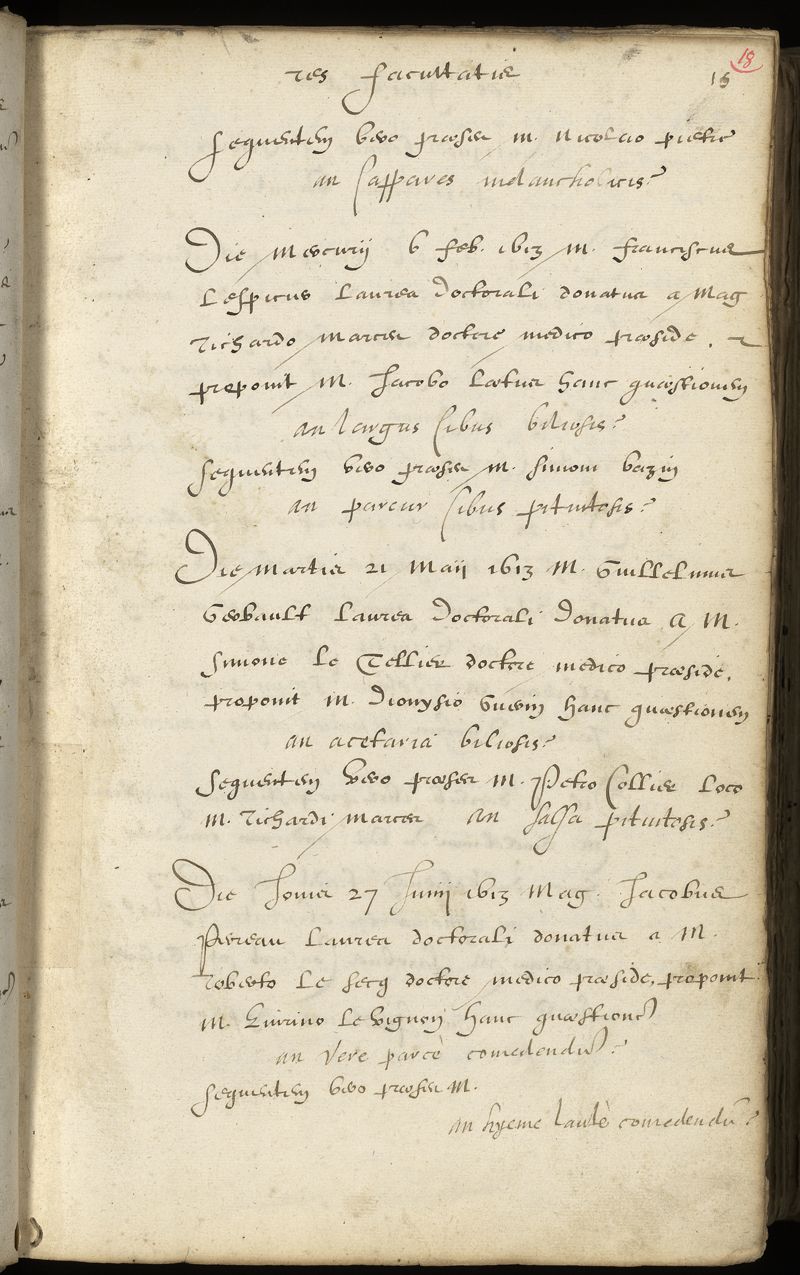 18
res facultatis 15
sequentem vero præses M. Nicolao pietre
an Cappares melancholicis?
Die Mercurij 6 feb. 1613 M. franciscus
Lespicus Laurea Doctorali donatus a Mag
Richardo Marces doctore medico præside.
proponit M. Jacobo Lætus hanc quæstionem
an largus Cibus biliosis?
sequentem vero præses M. simoni bazin
an parcus Cibus pituitosis?
Die Martis 21 Maij 1613 M. Guillelmus
Gerbault Laurea Doctorali Donatus a M.
Simone le Tellier doctore medico præside,
proponit M. Dionysio Guerin hanc quæstionem
an acetaria biliosis?
sequentem Vero præses M. Petro Collier Loco
M. Richardi Marces an salsa pituitosis?
Die Jovis 27 Junij 1613 Mag. Jacobus
Perreau Laurea doctorali donatus a M.
roberto le secq doctore medico præside, proponit
M. Quirino le Vignon hanc quæstionē
an Vere parcè comedendū?
sequentem vero præses M.
an hyeme lautè comedendū?